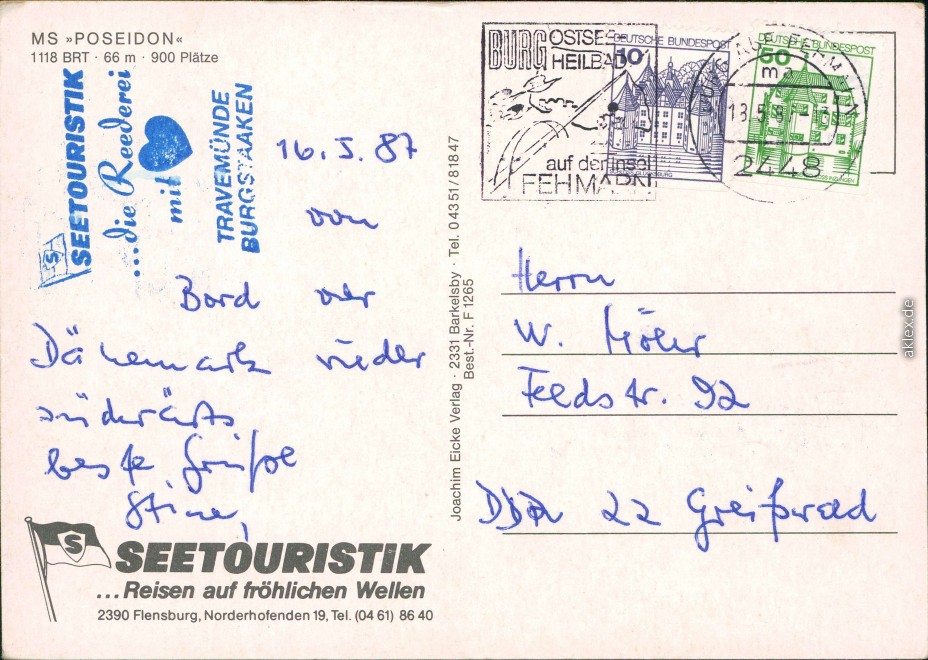 MS »POSEIDON«
1118 BRT · 66 m · 900 Plätze
SEETOURISTIK
...die Reederei
mit
TRAVEMÜNDE
BURGSTAAKEN
S
16. 5. 87
von
Bord
Dänemark wieder
südwärts
beste Grüße
S
SEETOURISTIK
...Reisen auf fröhlichen Wellen
2390 Flensburg, Norderhofenden 19, Tel. (04 61) 86 40
Joachim Eicke Verlag · 2331 Barkelsby · Tel. 0 43 51 / 8 18 47
Best.-Nr. F 1265
BURG OSTSEE
HEILBAD
auf der Insel
FEHMARN
10 DEUTSCHE BUNDESPOST
50 DEUTSCHE BUNDESPOST
ma
2448
Herrn
W.
Feldstr. 92
DDR 22 Greifswald
aklex.de